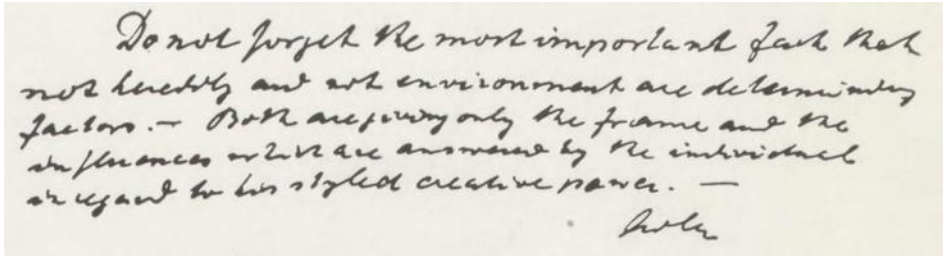 Do not forget the most important fact that
not heredity and not environment are determining
factors. — Both are giving only the frame and the
influences which are answered by the individual
in regard to his styled creative power. —
Adler